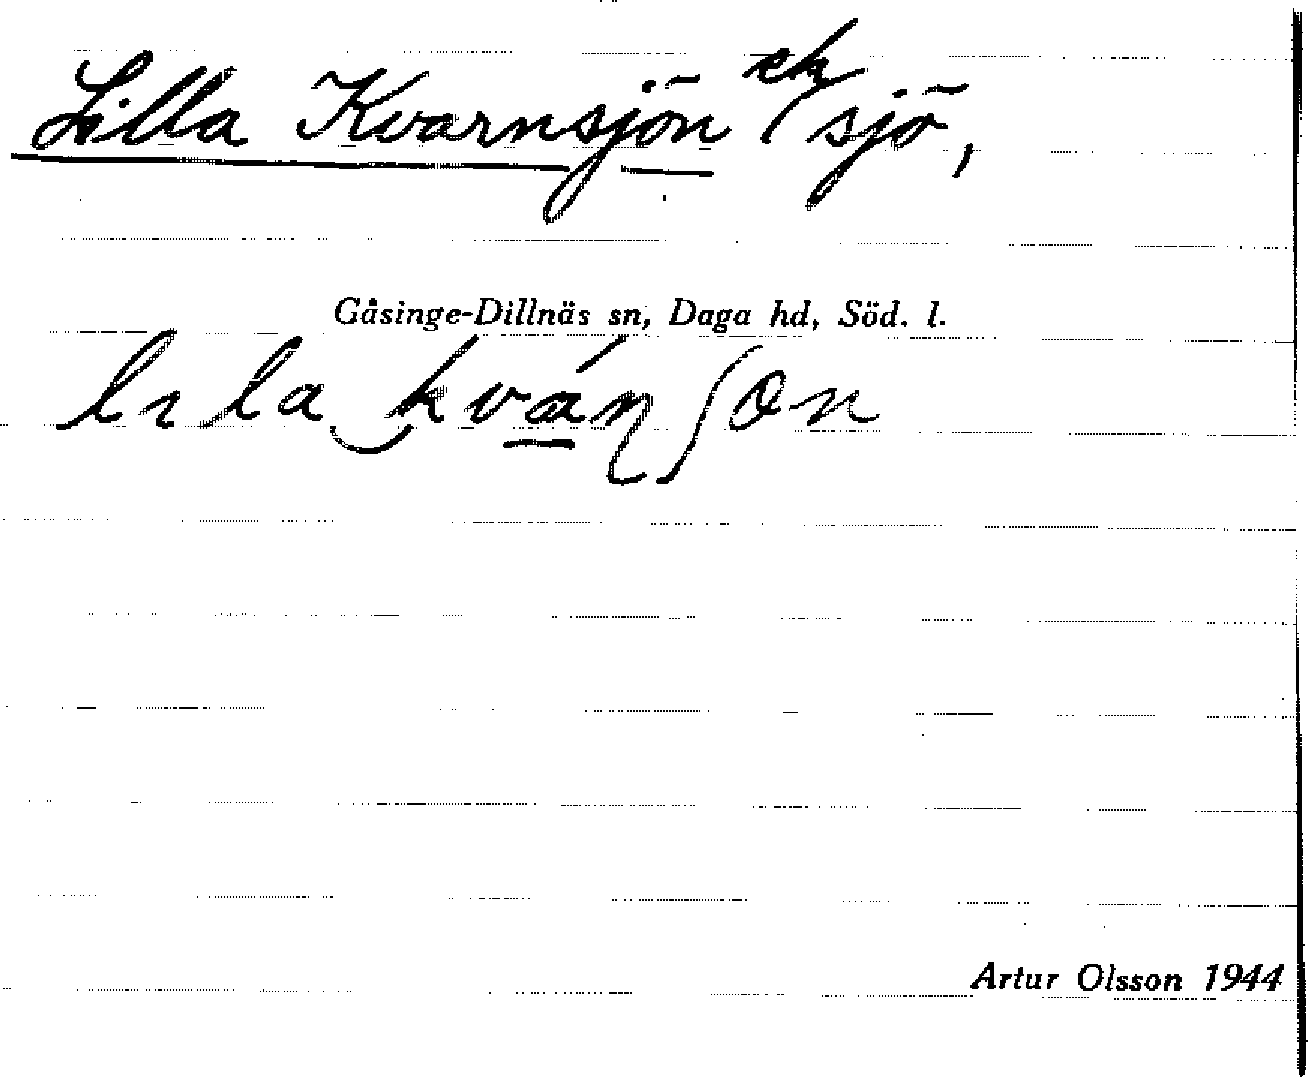 Lilla Kvarnsjön ek/sjö,
Gåsinge-Dillnäs sn, Daga hd, Söd. l.
Artur Olsson 1944